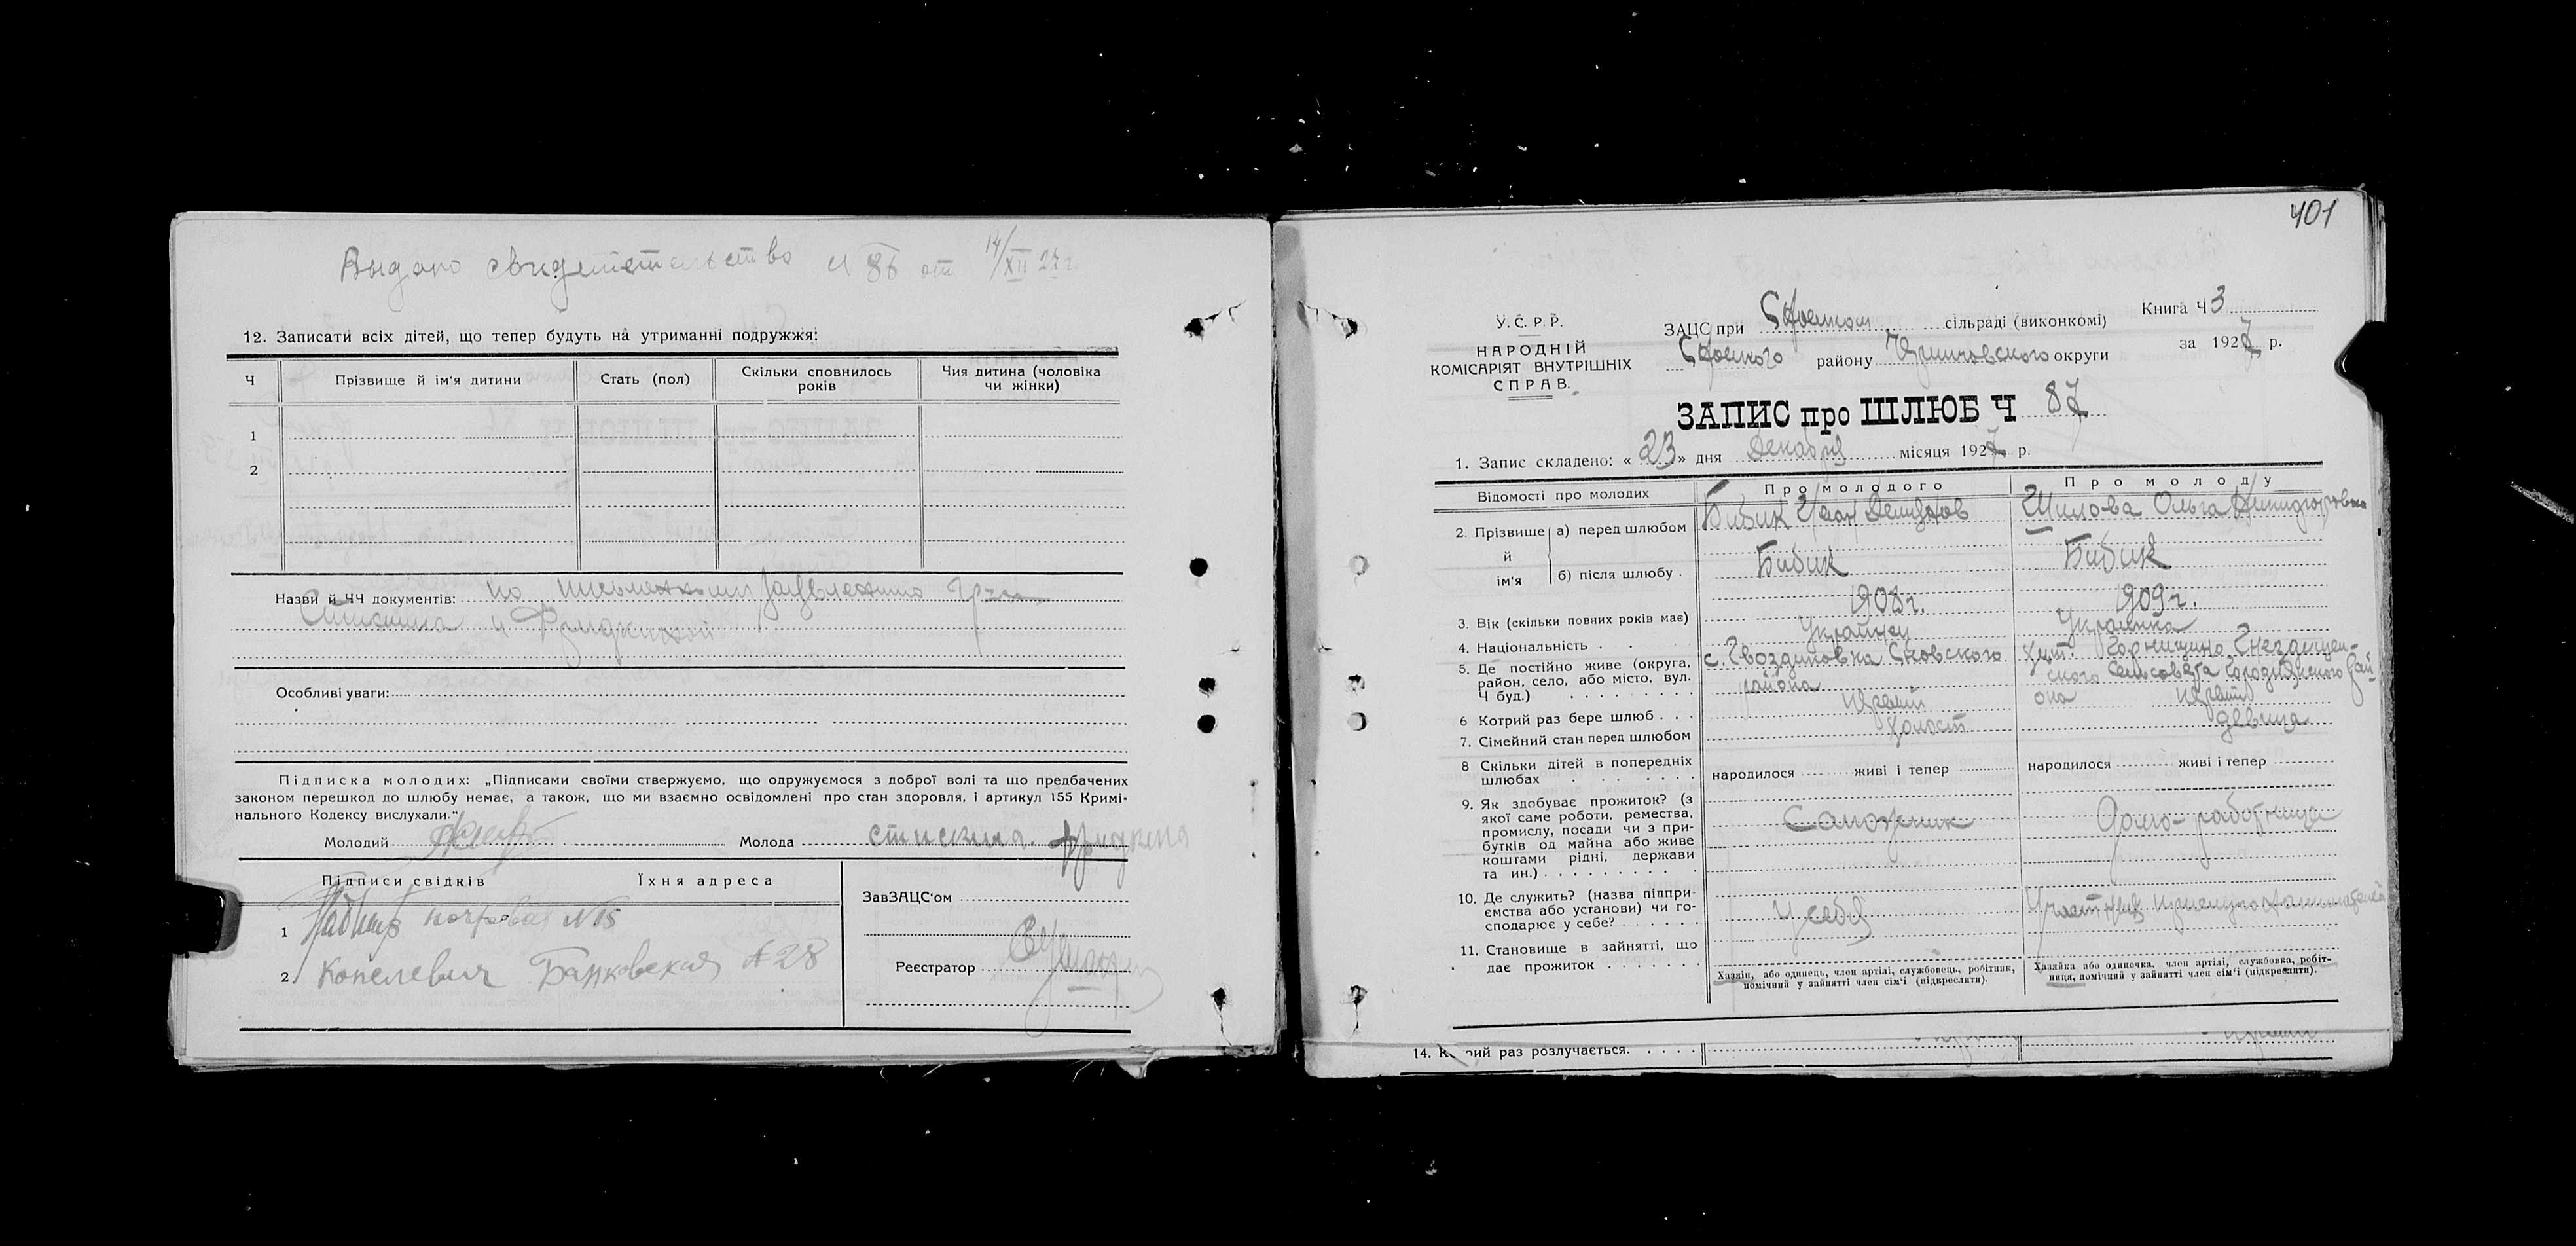 Выдано свидетельство N 86 от 14/XII 27 г.
12. Записати всіх дітей, що тепер будуть на утриманні подружжя:
Ч Прізвище й ім'я дитини Стать (пол) Скільки сповнилось років Чия дитина (чоловіка чи жінки)
1
2
Назви й ЧЧ документів: по письменному гр-н
и Фридкиной
Особливі уваги:
Підписка молодих: „Підписами своїми ствержуємо, що одружуємося з доброї волі та що предбачених
законом перешкод до шлюбу немає, а також, що ми взаємно освідомлені про стан здоровля, і артикул 155 Кримі-
нального Кодексу вислухали."
Молодий Молода стискина Фридкина
Підписи свідків Їхня адреса
ЗавЗАЦС'ом
1 N 15
2 Копелевич Банковская N 28
Реєстратор
401
У.С.Р.Р.
НАРОДНІЙ
КОМІСАРІЯТ ВНУТРІШНІХ
СПРАВ.
ЗАЦС при сільраді (виконкомі)
району округи
Книга Ч 3
за 1927 р.
ЗАПИС про ШЛЮБ Ч 87
1. Запис складено: « 23 » дня Декабря місяця 1927 р.
Відомості про молодих Про молодого Про молоду
2. Прізвище й ім'я а) перед шлюбом Бибик Иван Демидов Шилова Ольга
б) після шлюбу Бибик Бибик
3. Вік (скільки повних років має) 1908 г. 1909 г.
4. Національність Украинец Украинка
5. Де постійно живе (округа, район, село, або місто, вул. Ч буд.) с. Гвоздиковка Сновского района хут. сельсовета Городнянского района
6 Котрий раз бере шлюб первый первый
7. Сімейний стан перед шлюбом холост девица
8 Скільки дітей в попередніх шлюбах народилося живі і тепер народилося живі і тепер
9. Як здобуває прожиток? (з
якої саме роботи, ремества,
промислу, посади чи з при-
бутків од майна або живе
коштами рідні, держави
та ин.) Сапожник Домо-работница
10. Де служить? (назва підпри-
ємства або установи) чи го-
сподарює у себе? У себя
11. Становище в зайнятті, що
дає прожиток
Хазяїн, або одинець, член артілі, службовець, робітник,
помічний у зайнятті член сім'ї (підкреслити).
Хазяйка або одиночка, член артілі, службовка, робіт-
ниця, помічний у зайнятті член сім'ї (підкреслити).
14. Котрий раз розлучається.